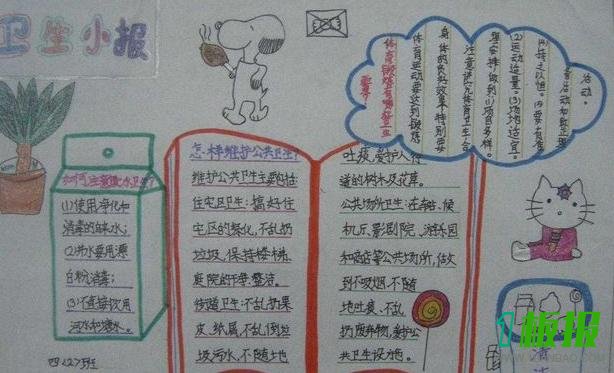 卫生小报
如何注意饮水卫生?
(1)使用净化和
消毒的自来水;
(2)井水要用漂
白粉消毒;
(3)不直接饮用
河水和塘水。
四(2)班
怎样维护公共卫生?
维护公共卫生主要包括:
住宅区卫生:搞好住
宅区的绿化,不乱扔
垃圾,保持楼梯、
庭院的干净、整洁。
街道卫生:不乱扔果
皮、纸屑,不乱倒垃
圾污水,不随土地
吐痰,爱护人行
道的树木及花草。
公共场所卫生:在车站、候
机厅、影剧院、游乐园
和商店等公共场所,做
到不吸烟,不随
地吐痰、不乱
扔废弃物,爱护公
共卫生设施。
体育运动要达到锻炼
身体的良好效果,特别要
注意讲究体育卫生,合
理安排,做到:(1)项目多样。
(2)运动适量。(3)场地适宜。
(4)持之以恒。(5)要有准
备活动和整理
活动。
板报